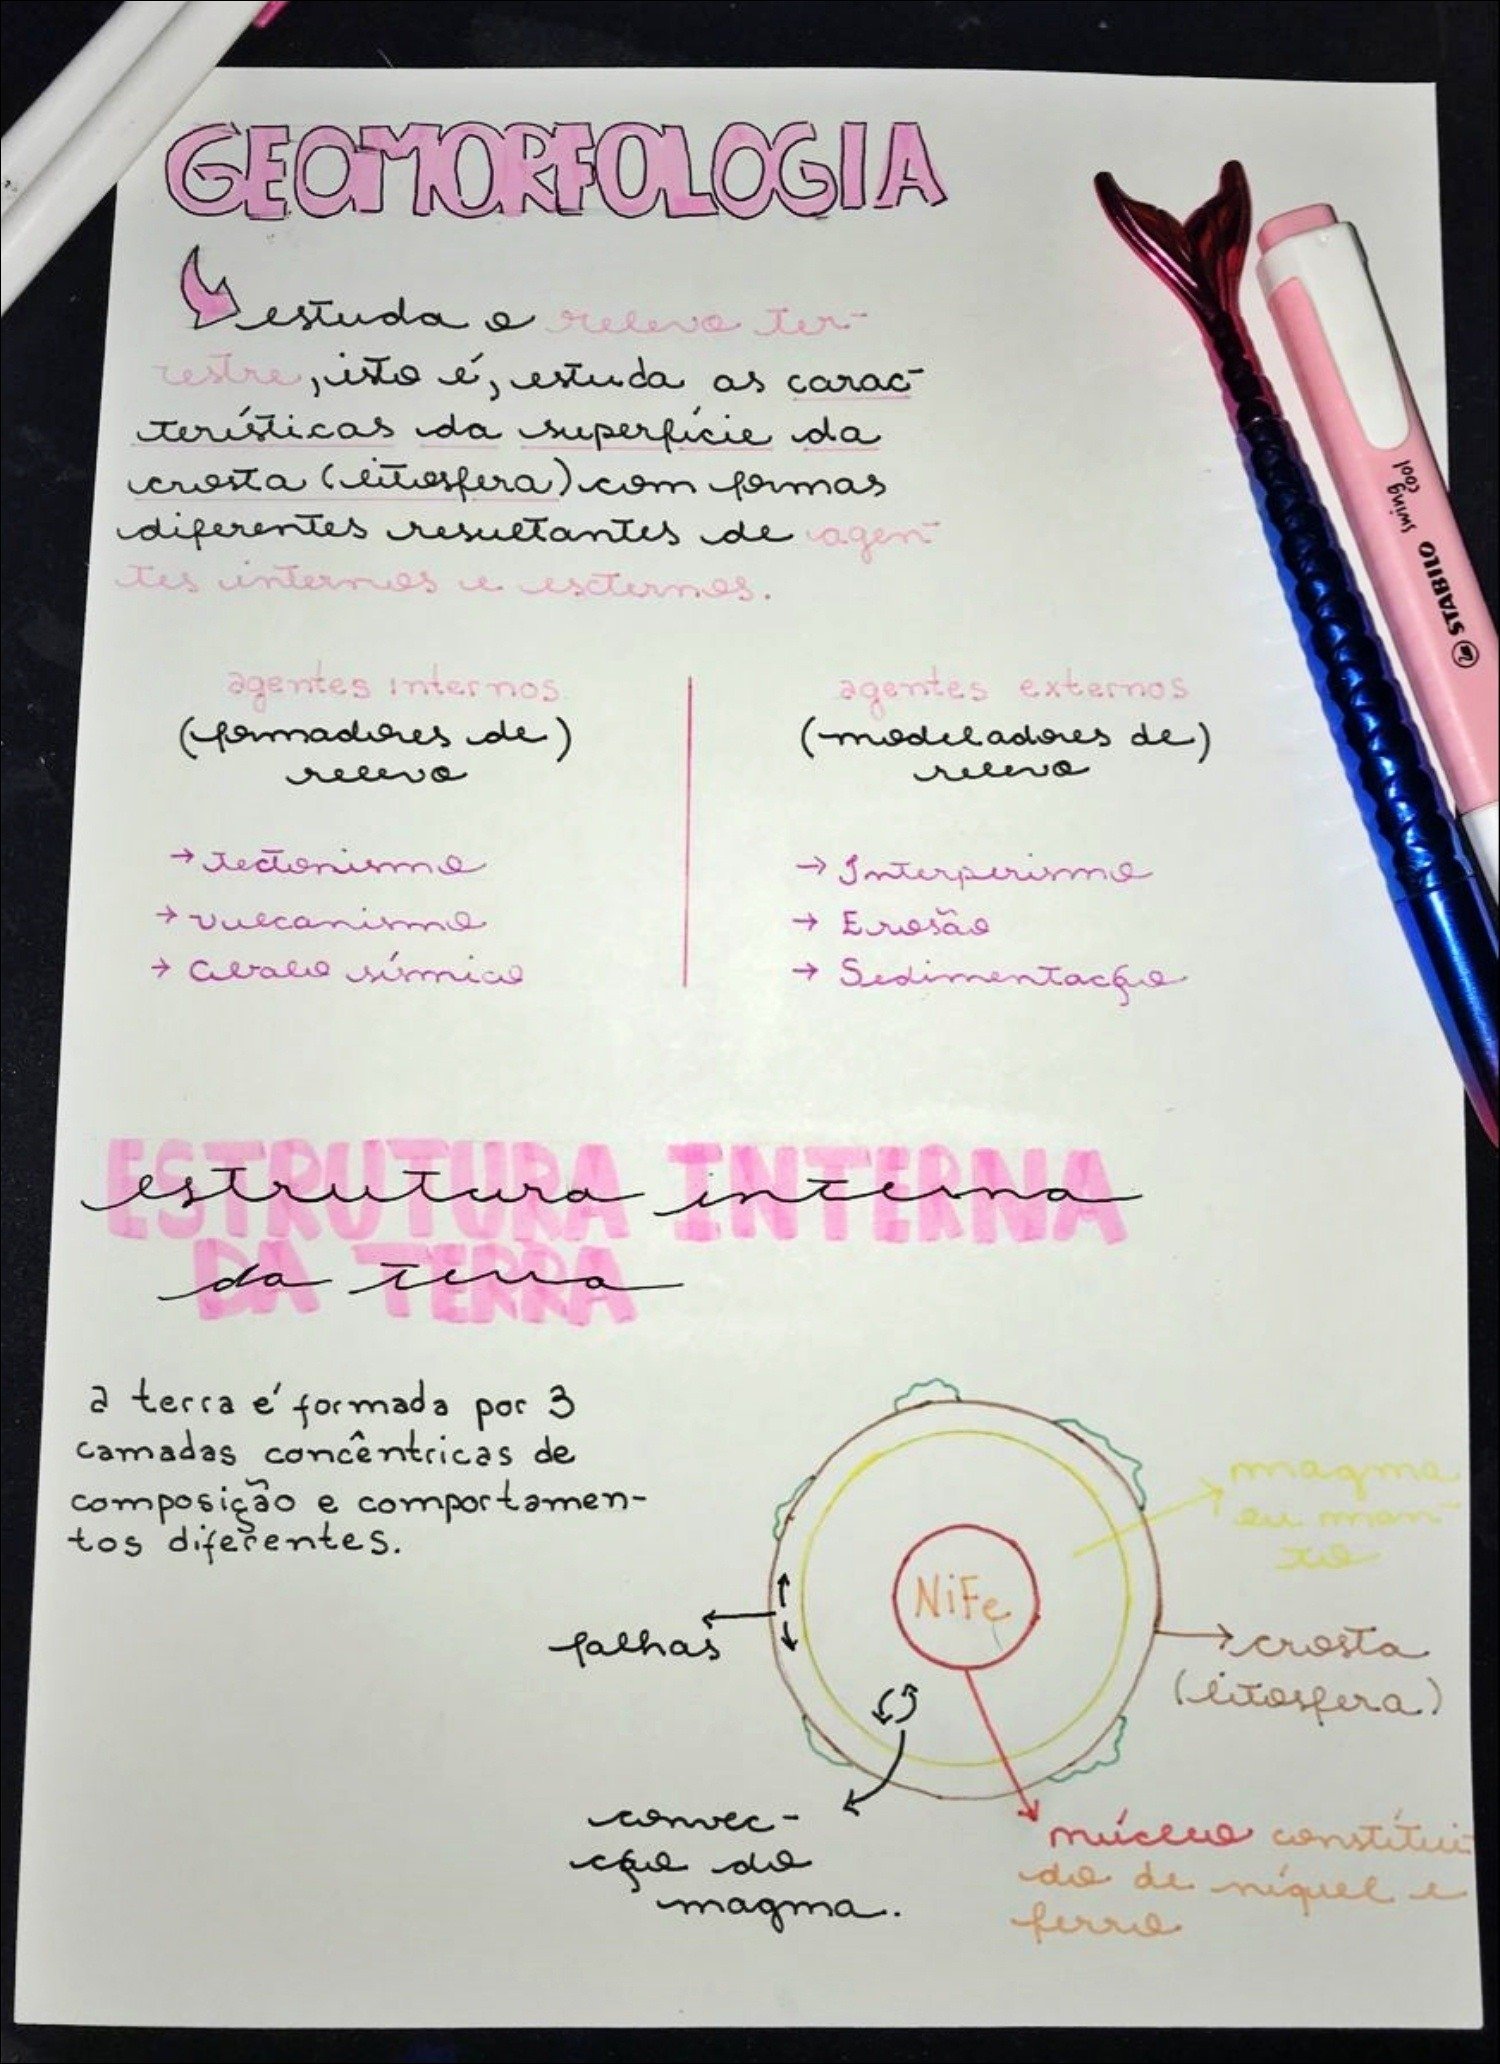 GEOMORFOLOGIA
estuda o relevo ter-
restre, isto é, estuda as carac-
terísticas da superfície da
crosta (litosfera) com formas
diferentes resultantes de agen-
tes internos e externos.
agentes internos
(formadores de)
relevo
→ tectonismo
→ vulcanismo
→ abalo sísmico
agentes externos
(modeladores de)
relevo
→ Interperismo
→ Erosão
→ Sedimentação
ESTRUTURA INTERNA
estrutura interna
DA TERRA
da terra
a terra é formada por 3
camadas concêntricas de
composição e comportamen-
tos diferentes.
magma
ou man-
to
NiFe
falhas
crosta
(litosfera)
convec-
ção do
magma.
núcleo constituí-
do de níquel e
ferro
STABILO swing
cool